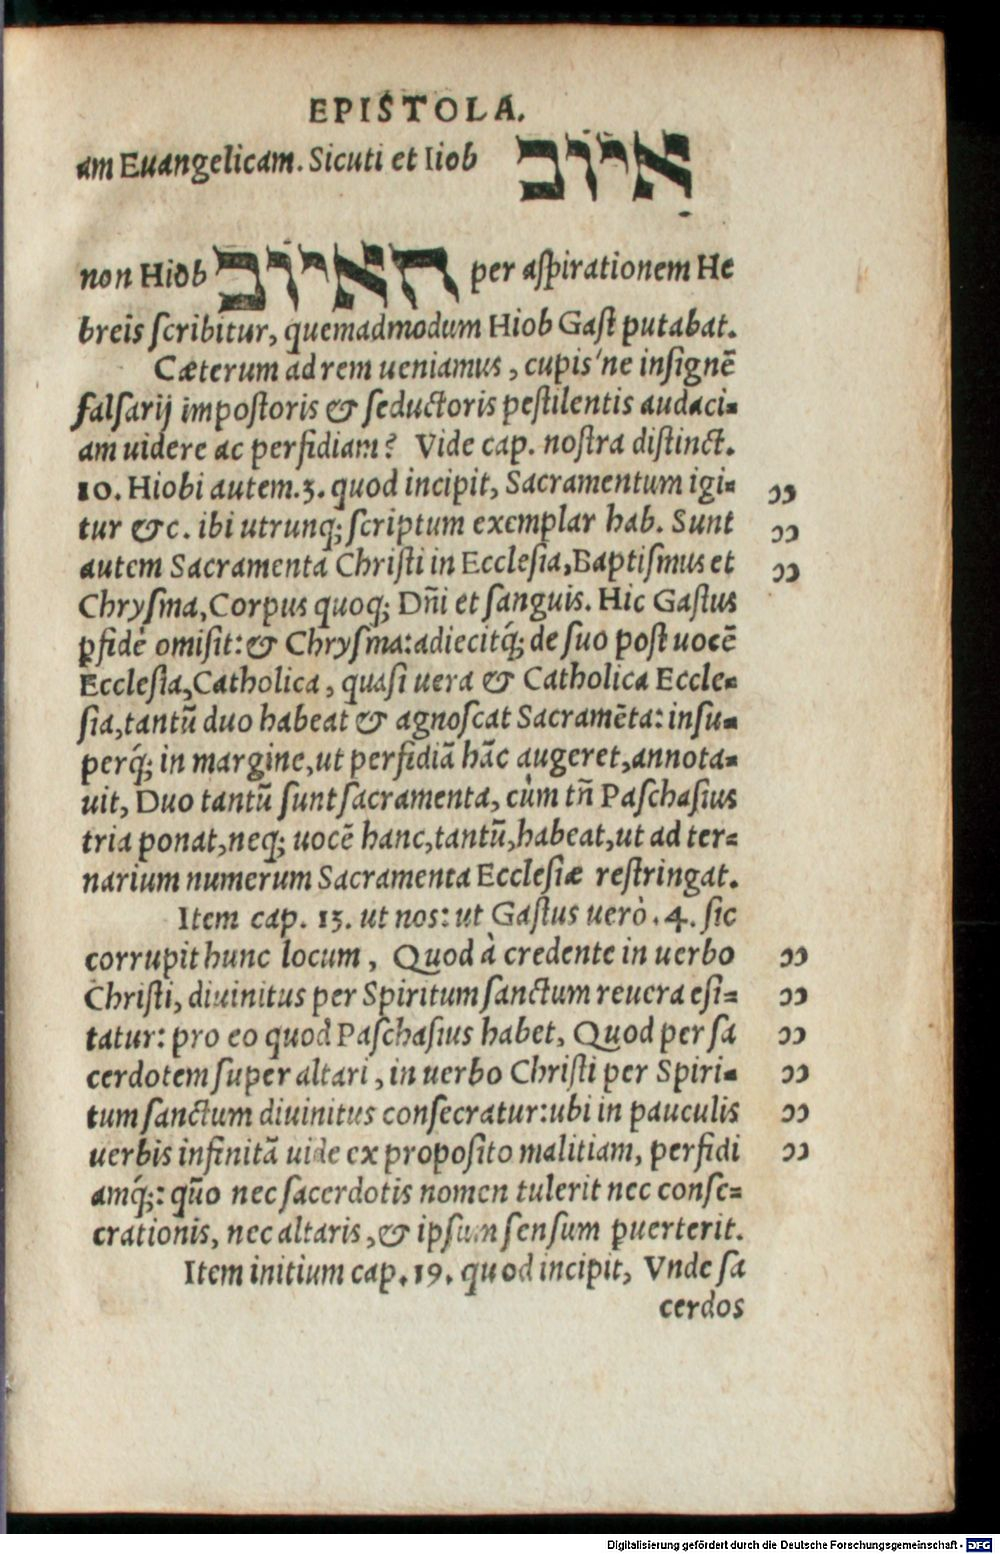 EPISTOLA.
am Euangelicam. Sicuti et Iiob איוב
non Hiob האיוב per aſpirationem He
breis ſcribitur, quemadmodum Hiob Gaſt putabat.
Cæterum ad rem ueniamus, cupis'ne inſignē
falſarij impoſtoris & ſeductoris peſtilentis audaci=
am uidere ac perfidiam? Vide cap. noſtra diſtinct.
10. Hiobi autem.3. quod incipit, Sacramentum igi= ɔɔ
tur &c. ibi utrunq; ſcriptum exemplar hab. Sunt ɔɔ
autem Sacramenta Chriſti in Eccleſia, Baptiſmus et ɔɔ
Chryſma, Corpus quoq; Dñi et ſanguis. Hic Gaſtus
ꝑfidè omiſit: & Chryſma: adiecitq́; de ſuo poſt uocē
Eccleſia, Catholica, quaſi uera & Catholica Eccle=
ſia, tantū duo habeat & agnoſcat Sacramēta: inſu=
perq́; in margine, ut perfidiā hāc augeret, annota=
uit, Duo tantū ſunt ſacramenta, cùm tñ Paſchaſius
tria ponat, neq; uocē hanc, tantū, habeat, ut ad ter=
narium numerum Sacramenta Eccleſiæ reſtringat.
Item cap. 13. ut nos: ut Gaſtus uerò .4. ſic
corrupit hunc locum, Quod à credente in uerbo ɔɔ
Chriſti, diuinitus per Spiritum ſanctum reuera eſi= ɔɔ
tatur: pro eo quod Paſchaſius habet, Quod per ſa ɔɔ
cerdotem ſuper altari, in uerbo Chriſti per Spiri= ɔɔ
tum ſanctum diuinitus conſecratur: ubi in pauculis ɔɔ
uerbis infinitā uide ex propoſito malitiam, perfidi ɔɔ
amq́;: qūo nec ſacerdotis nomen tulerit nec conſe=
crationis, nec altaris, & ipſum ſenſum puerterit.
Item initium cap. 19. quod incipit, Vnde ſa
cerdos
Digitalisierung gefördert durch die Deutsche Forschungsgemeinschaft - DFG